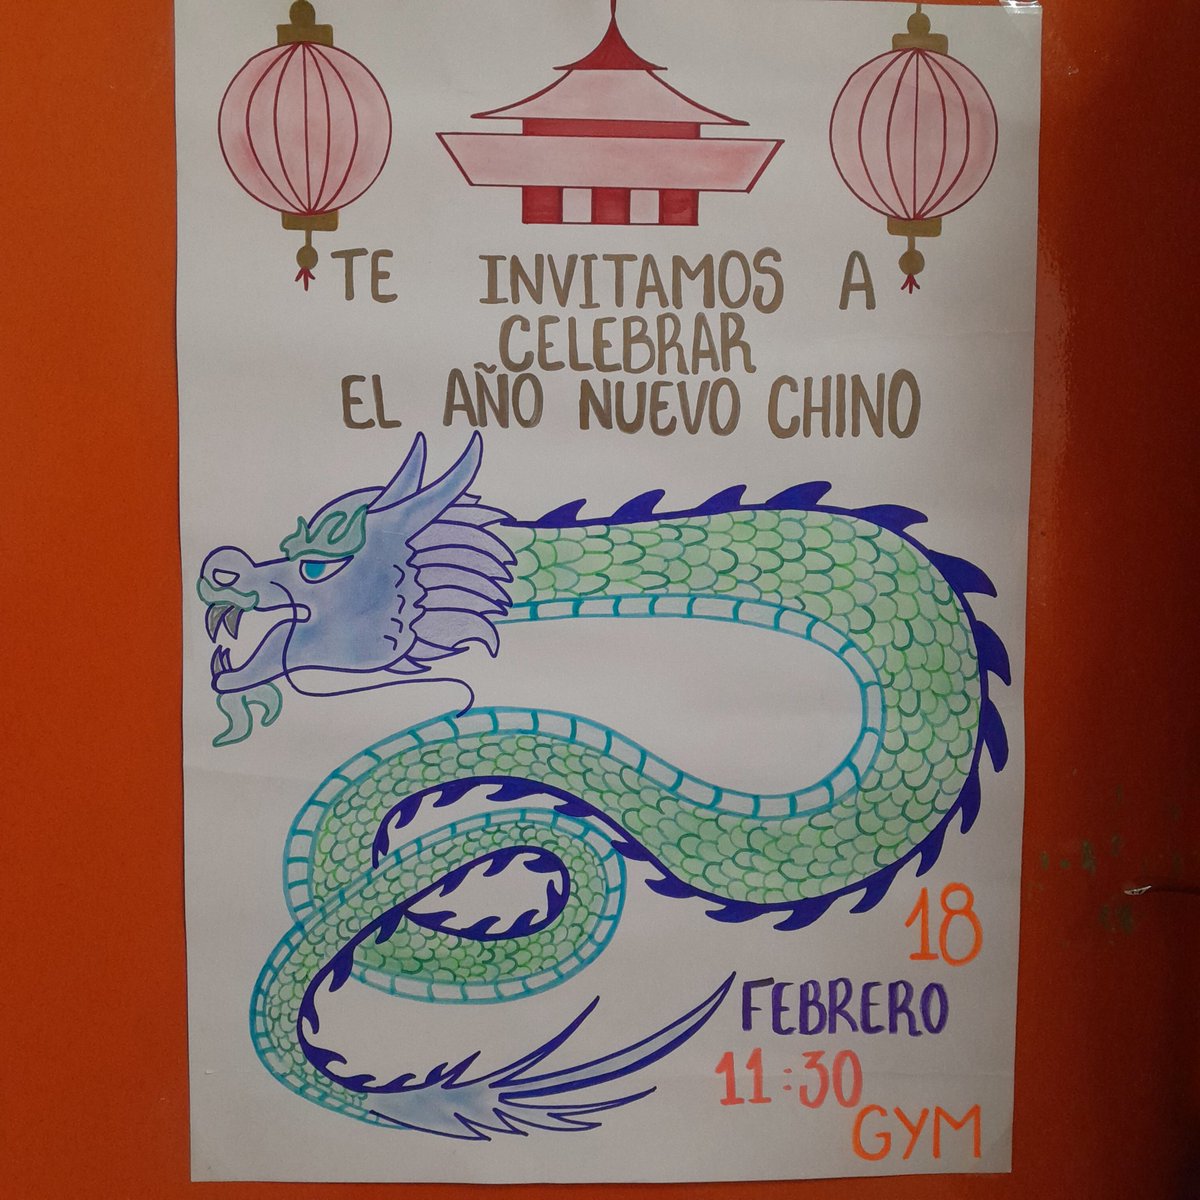 TE INVITAMOS A
CELEBRAR
EL AÑO NUEVO CHINO
18
FEBRERO
11:30
GYM